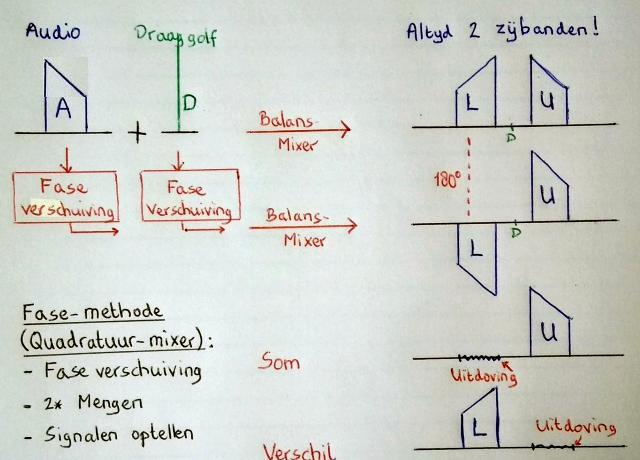 Audio
Draaggolf
Altyd 2 zÿbanden!
A
+
D
Balans-
Mixer
L
U
D
Fase
verschuiving
Fase
verschuiving
180°
Balans-
Mixer
U
D
L
Fase-methode
(Quadratuur-mixer):
- Fase verschuiving
- 2* Mengen
- Signalen optellen
Som
U
Uitdoving
Verschil
L
Uitdoving